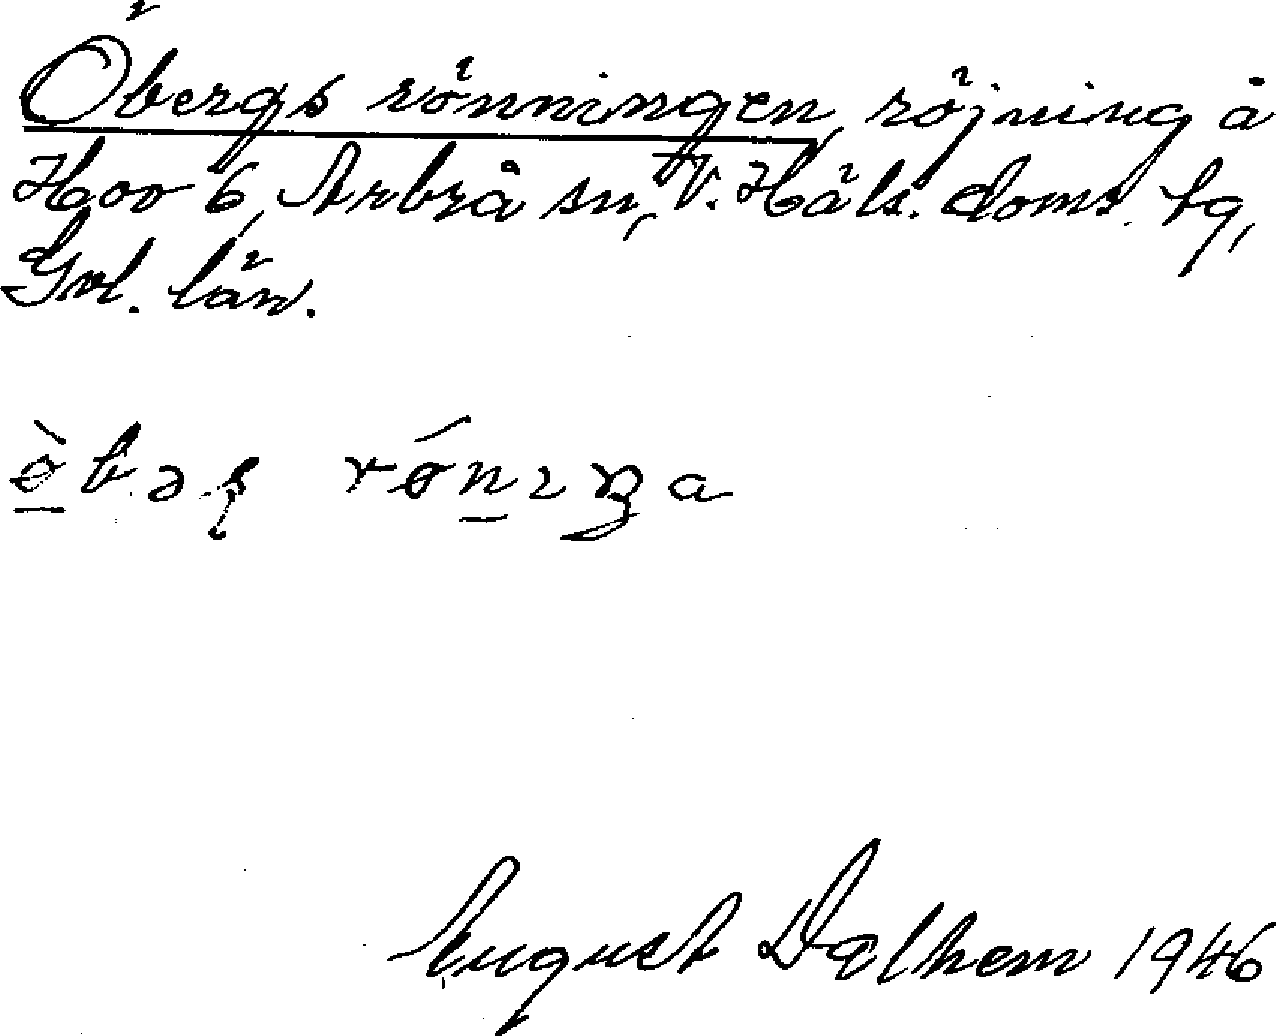 Öbergs rönningen, röjning å
Hov 6, Arbrå sn, V. Häls. doms. tg,
Gvl. län.
August Dalhem 1946